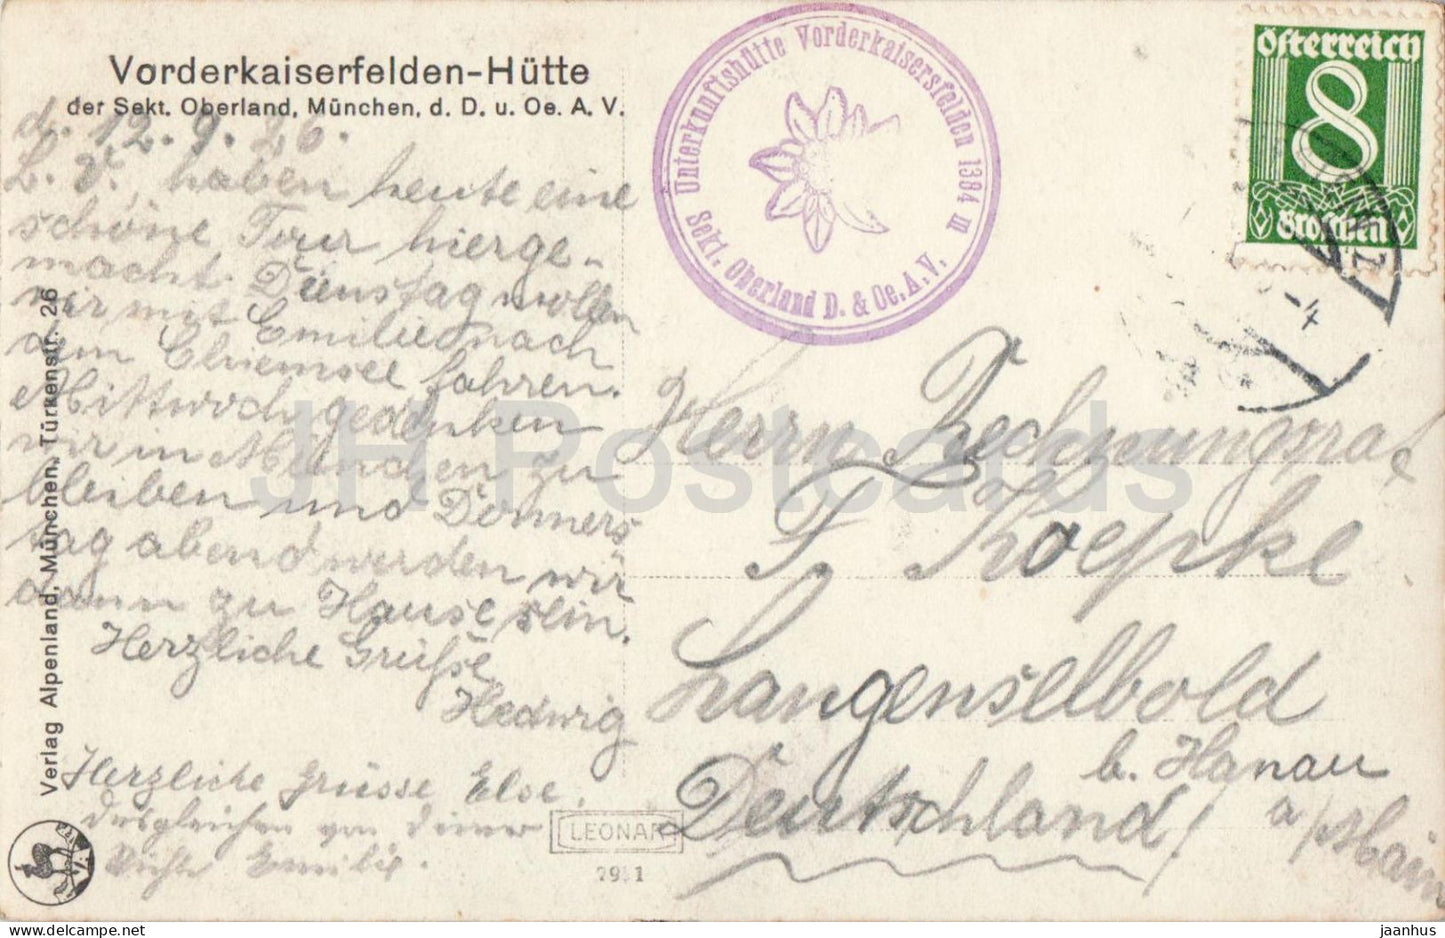 Vorderkaiserfelden-Hütte
der Sekt. Oberland, München, d. D. u. Oe. A. V.
d. 12. 9. 26.
L. V., haben heute eine
schöne Tour hierge-
macht. Dienstag wollen
wir mit Emilie nach
dem Chiemsee fahren.
Mittwoch gedenken
wir in München zu
bleiben und Donners
tag abend werden wir
dann zu Hause sein.
Herzliche Grüße
Hedwig
Herzliche Grüsse Else.
Desgleichen von Deiner
Nichte Emilie.
Verlag Alpenland, München, Türkenstr. 26
Unterkunftshütte Vorderkaisersfelden 1384 m
Sekt. Oberland D. & Oe. A. V.
Österreich
8
Groschen
Herrn Rechnungsrat
F. Koepke
Langenselbold
b. Hanau
a/Main
Deutschland
LEONAR
2931
JH Postcards
jaanhus @ delcampe.net